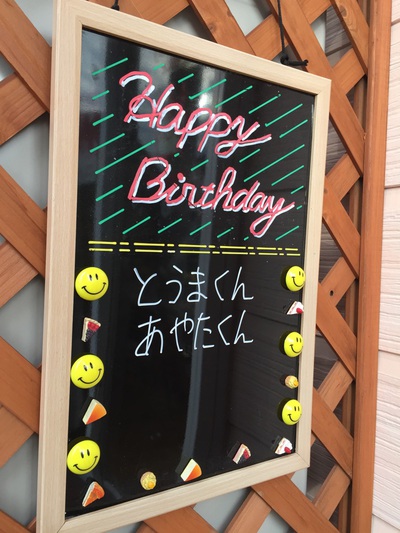 Happy
Birthday
とうまくん
あやたくん